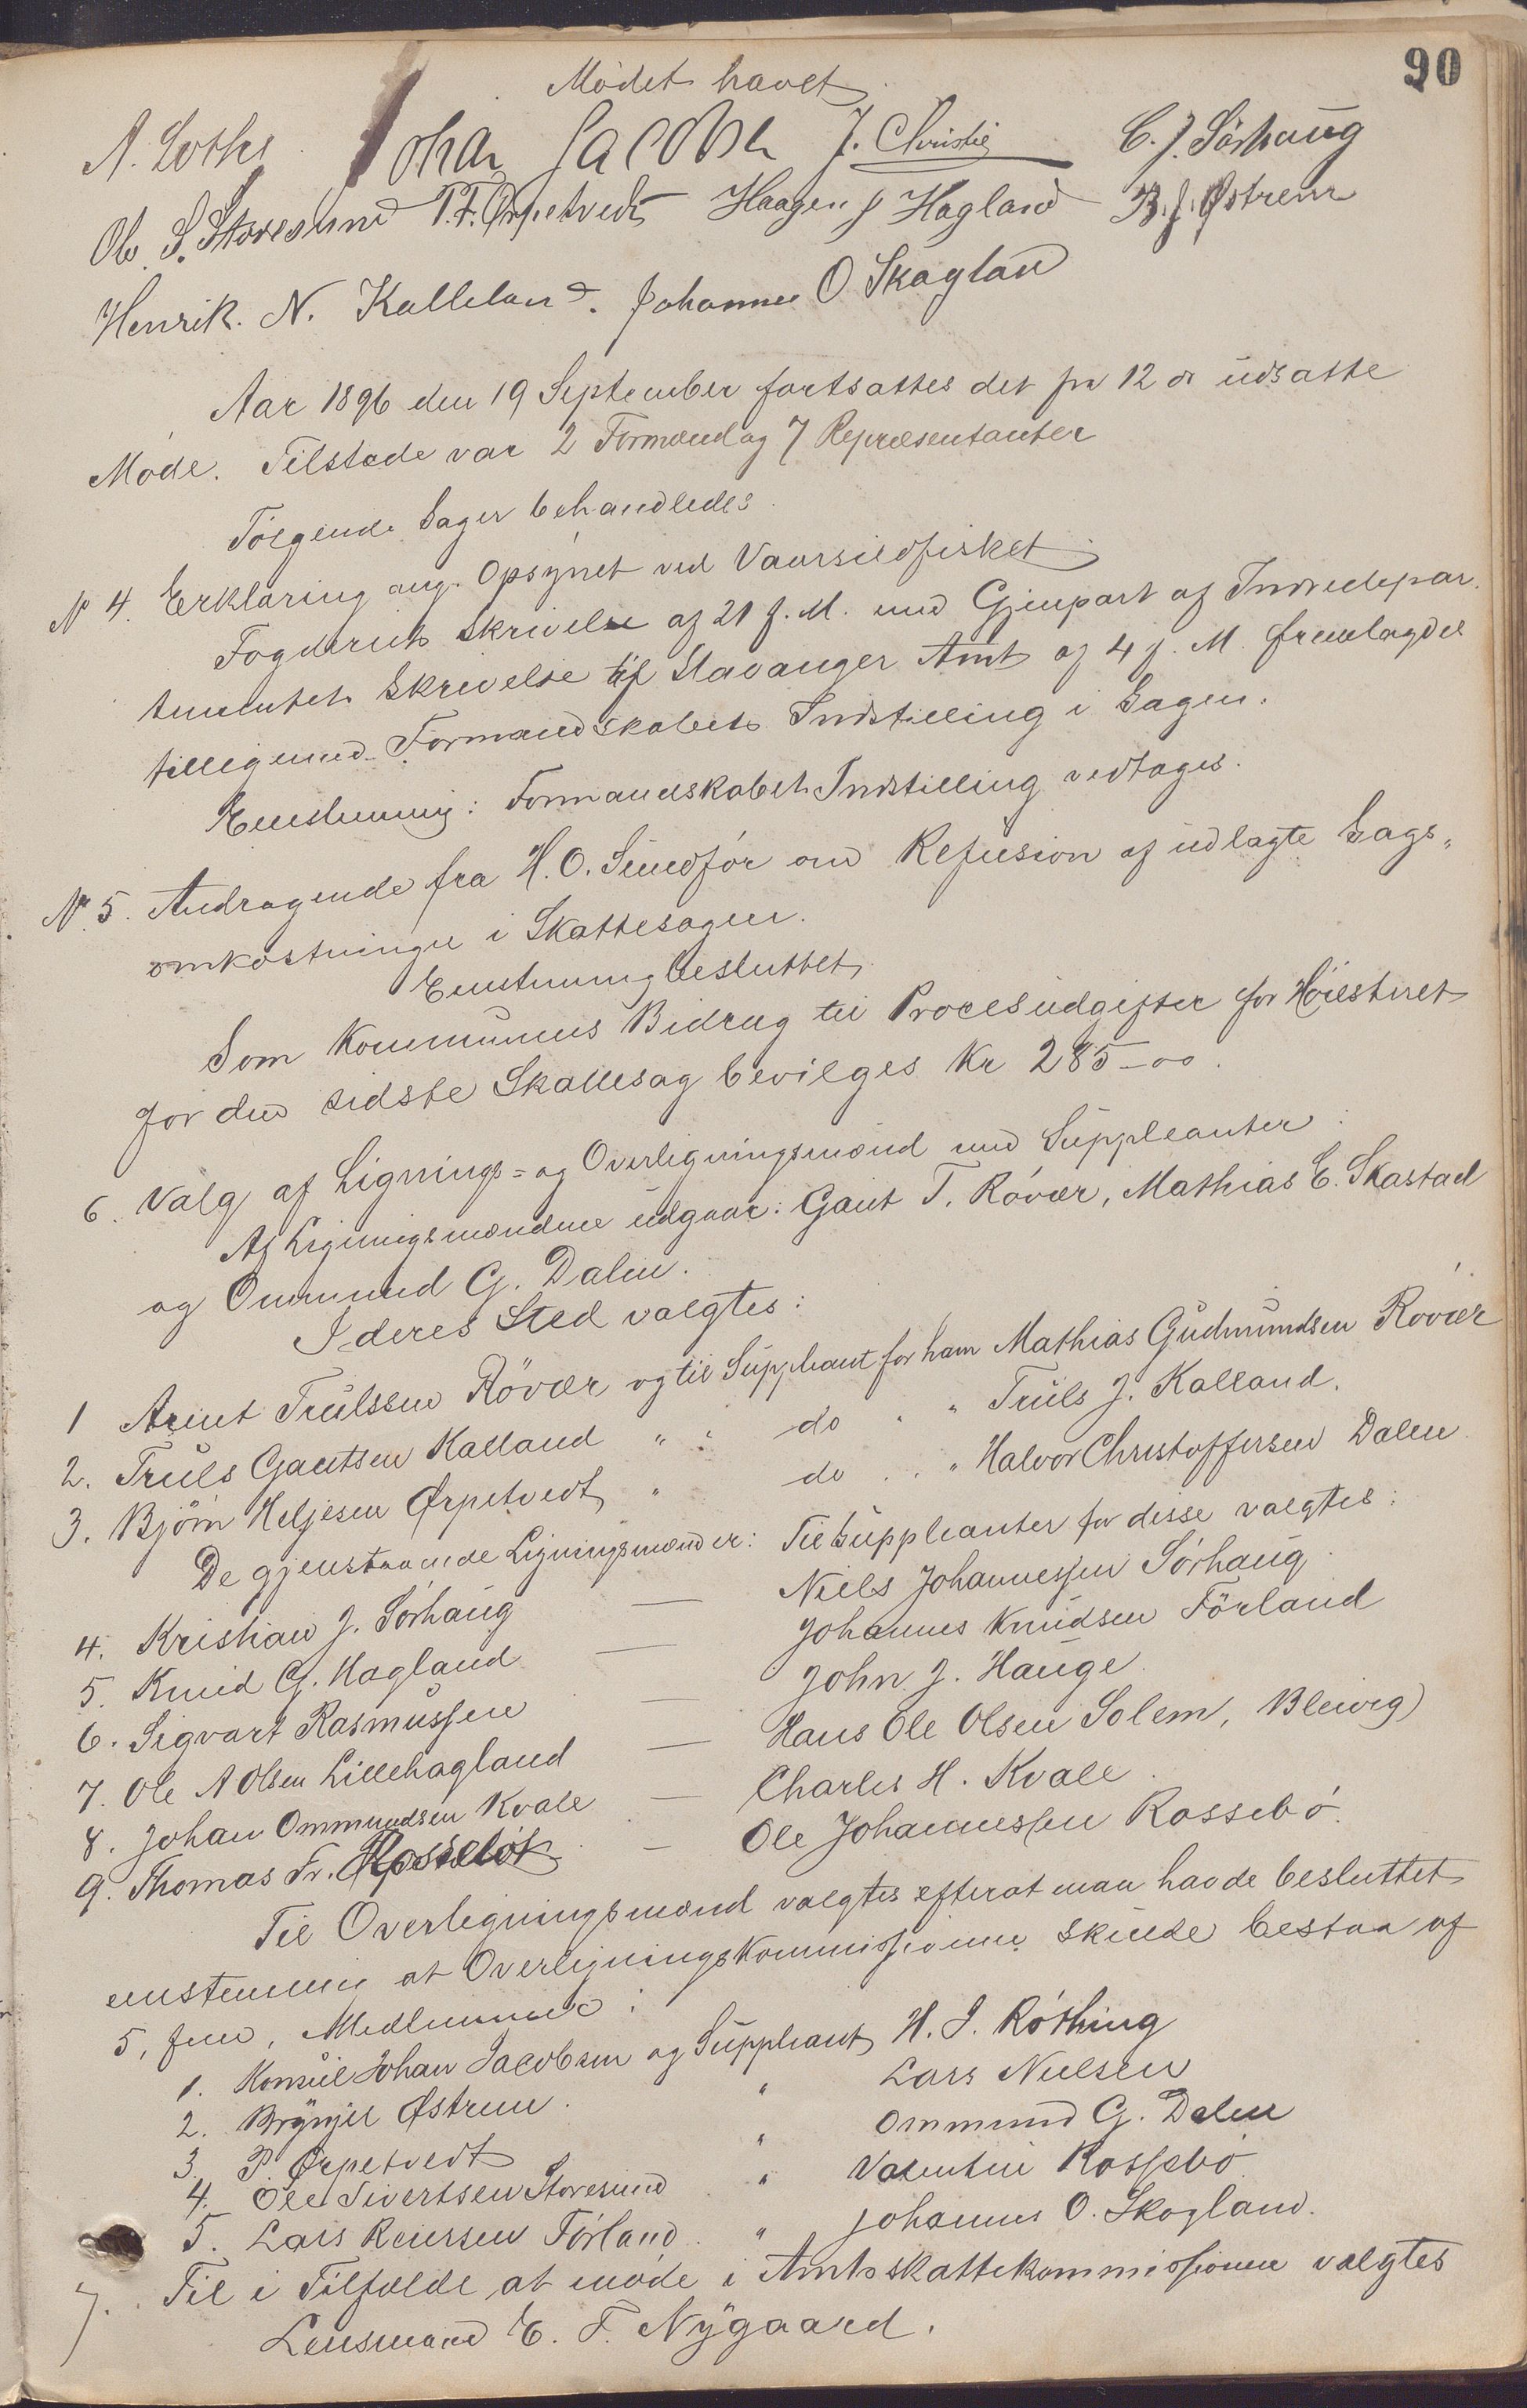 90
Mødet hævet
A. Lothe Johan Jacobsen J. Christie C. J. Sørhaug
Ole S. Storesund P. F. Ørpetvedt Haagen J Hagland B. J. Østrem
Henrik. N. Kalleland. Johannes O Skogland
Aar 1896 den 19 September fortsattes det fra 12 ds udsatte
Møde. Tilstede var 2 Formænd og 7 Repræsentanter
Følgende Sager behandledes.
N 4. Erklæring ang. Opsynet ved Vaarsildfisket
Fogderiets Skrivelse af 21 f. M. med Gjenpart af Indredepar.
tementets Skrivelse til Stavanger Amt af 4 f. M. fremlagdes
tilligemed Formandskabets Indstilling i Sagen.
Eenstemmig: Formandskabets Indstilling vedtages.
N 5. Andragende fra H. O. Sundfør om Refusion af udlagte Sags„
omkostninger i Skattesagen.
Eenstemmig besluttet
Som Kommunens Bidrag til Procesudgifter for Høiesteret
for den sidste Skattesag bevilges Kr 285-00.
6. Valg af Lignings= og Overligningsmænd med Suppleanter:
Af Ligningsmændene udgaar: Gaut T. Røvær, Mathias E. Skastad
og Ommund G. Dalen.
I deres Sted valgtes:
1 Arent Trulssen Røvær og til Suppleant for ham Mathias Gudmundsen Røvær
2. Truls Gautsen Kalland „ „ do „ „ Truls J. Kalland.
3. Bjørn Heljesen Ørpetvedt „ do . . „ Halvor Christoffersen Dalen
De gjenstaaende Ligningsmænd er: Til Suppleanter for disse valgtes:
4. Kristian J. Sørhaug — Niels Johannessen Sørhaug
5. Knud G. Hagland — Johannes Knudsen Førland
6. Sigvart Rasmussen — John J. Hauge
7. Ole A Olsen Lillehagland — Hans Ole Olsen Solem, Bleivig)
8. Johan Ommundsen Kvale — Charles H. Kvale
9. Thomas Fr. — Ole Johannessen Rossebø.
Til Overligningsmænd valgtes efterat man havde besluttet
enstemmig at Overligningskommissionen skulde bestaa af
5, fem, Medlemmer:
1. Konsul Johan Jacobsen og Suppleant H. J. Røthing
2. Brynjel Østrem. „ Lars Nielsen
3. P. Ørpetvedt „ Ommund G. Dalen
4. Ole Sivertsen Storesund „ Valentin Rossebø
5. Lars Reiersen Førland „ Johannes O. Skogland.
7. Til i Tilfælde at møde i Amtsskattekommissionen valgtes
Lensmand E. F. Nygaard.